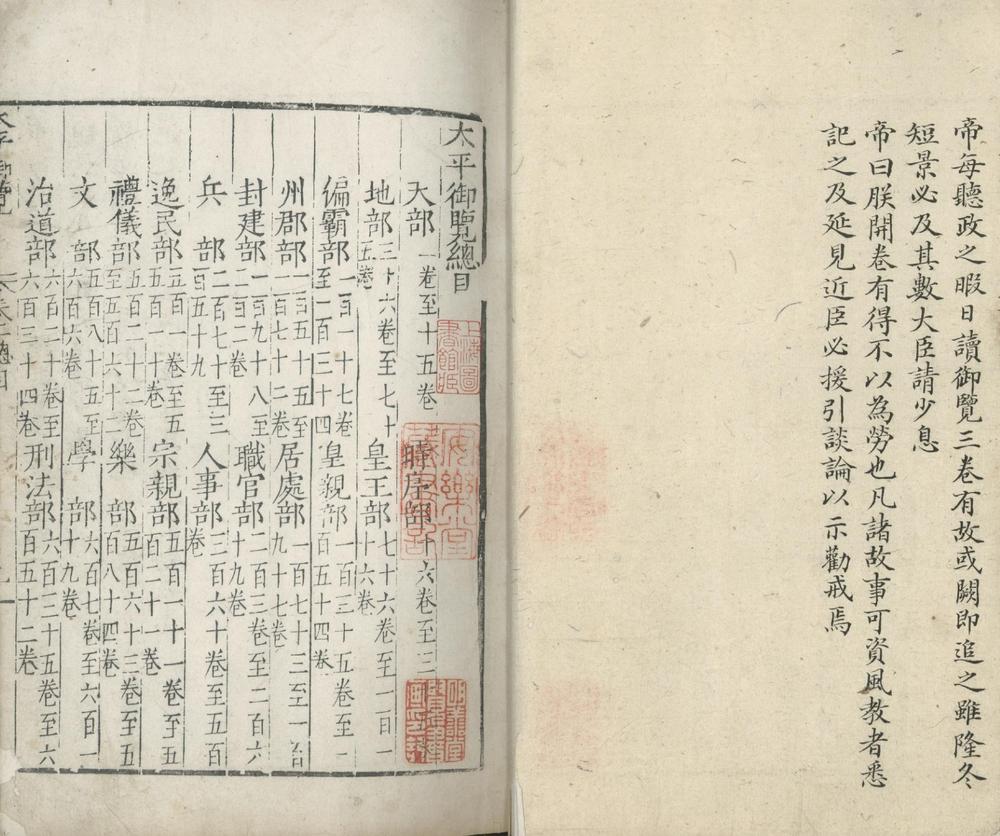 帝每聽政之暇日讀御覽三卷有故或闕即追之雖隆冬
短景必及其數大臣請少息
帝曰朕開卷有得不以為勞也凡諸故事可資風教者悉
記之及延見近臣必援引談論以示勸戒焉
太平御覽總目
天部 一卷至十五卷 時序部 十六卷至三
地部 三十六卷至七十五卷 皇王部 七十六卷至一百一十六卷
偏霸部 一百一十七卷至一百三十四 皇親部 一百三十五卷至一百五十四卷
州郡部 一百五十五至一百七十二卷 居處部 一百七十三至一百九十七卷
封建部 一百九十八至二百二卷 職官部 二百三卷至二百六十九卷
兵部 二百七十至三百五十九 人事部 三百六十卷至五百卷
逸民部 五百一卷至五百一十卷 宗親部 五百一十一卷至五百二十一卷
禮儀部 五百二十二卷至五百六十二 樂部 五百六十三卷至五百八十四卷
文部 五百八十五至六百六卷 學部 六百七卷至六百一十九卷
治道部 六百二十卷至六百三十四卷 刑法部 六百三十五卷至六百五十二卷
上海圖書館藏